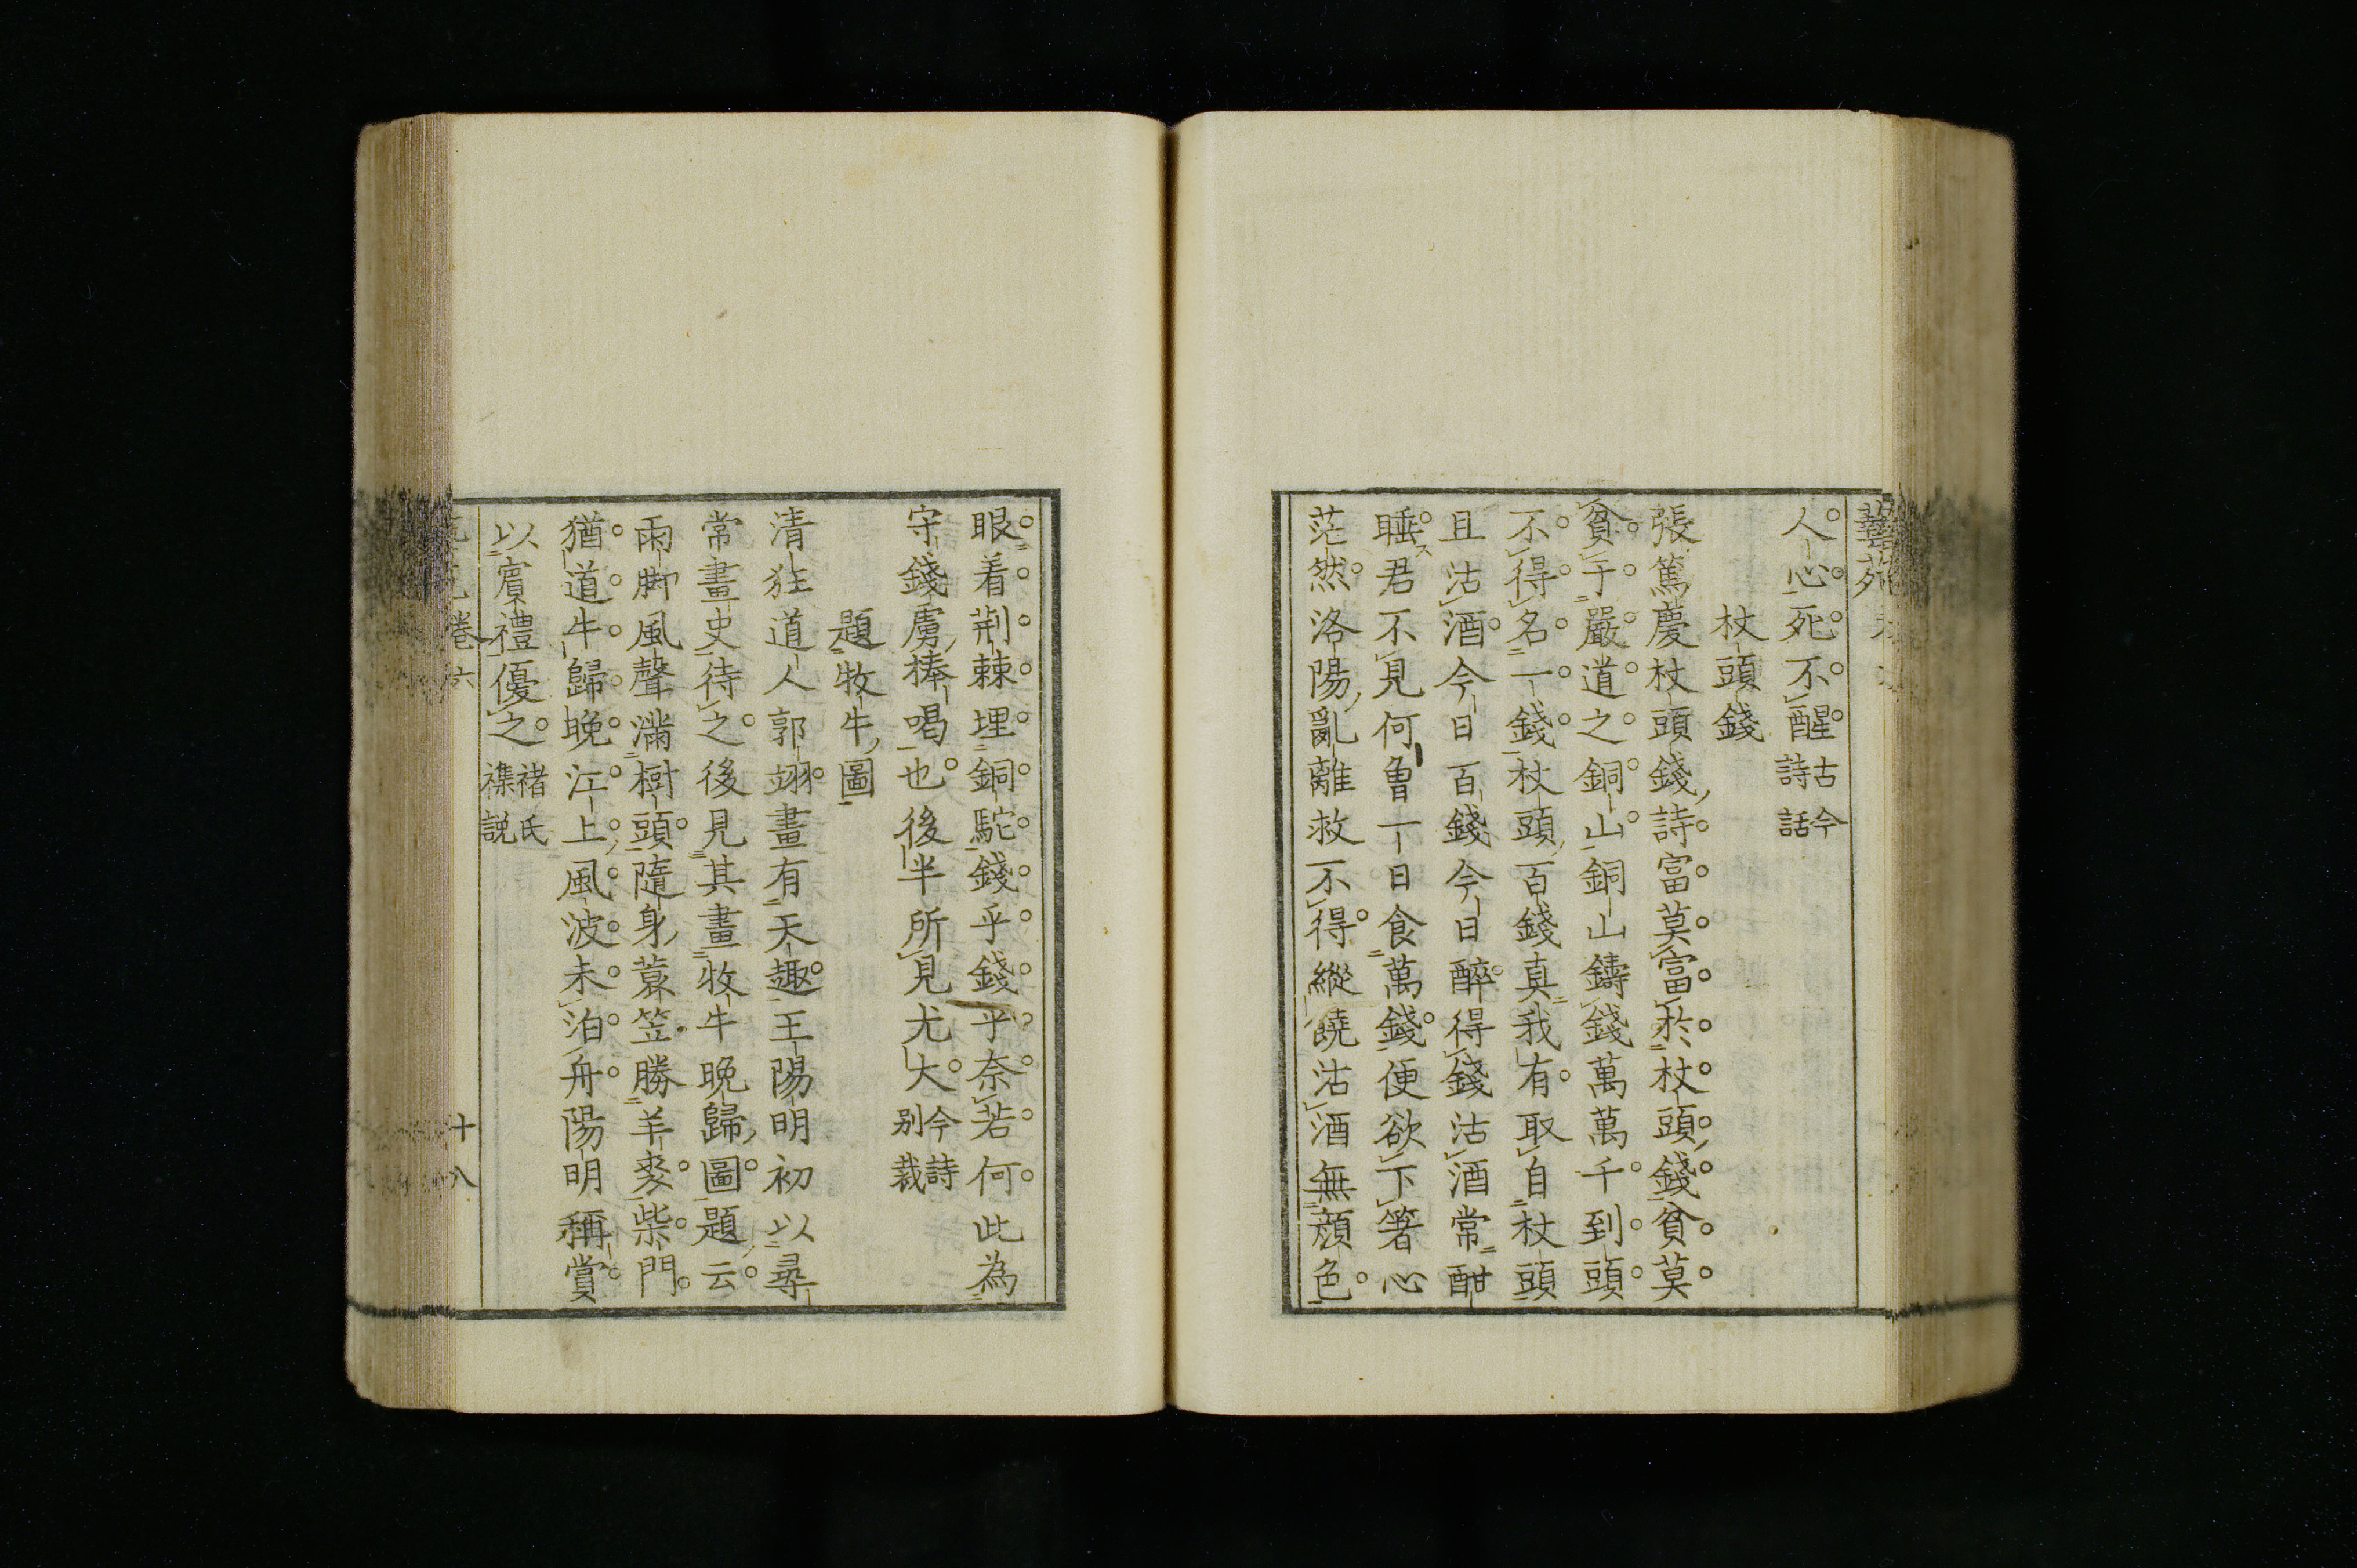 藝苑
人心死不醒古今詩話
杖頭錢
張篤慶杖頭錢詩富莫富於杖頭錢貧莫
貧于嚴道之銅山銅山鑄錢萬萬千到頭
不得名一錢杖頭百錢真我有取自杖頭
且沽酒今日百錢今日醉得錢沽酒常酣
睡君不見何曾一日食萬錢便欲下箸心
茫然洛陽亂離救不得縱饒沽酒無顏色
眼着荆棘埋銅駝錢乎錢乎奈若何此為
守錢虜棒喝也後半所見尤大今詩別裁
題牧牛圖
清狂道人郭翊畫有天趣王陽明初以尋
常畫史待之後見其畫牧牛晚歸圖題云
雨脚風聲滿樹頭隨身蓑笠勝羊裘柴門
猶道牛歸晚江上風波未泊舟陽明稱賞
以賓禮優之褚氏襍説
卷六
十八